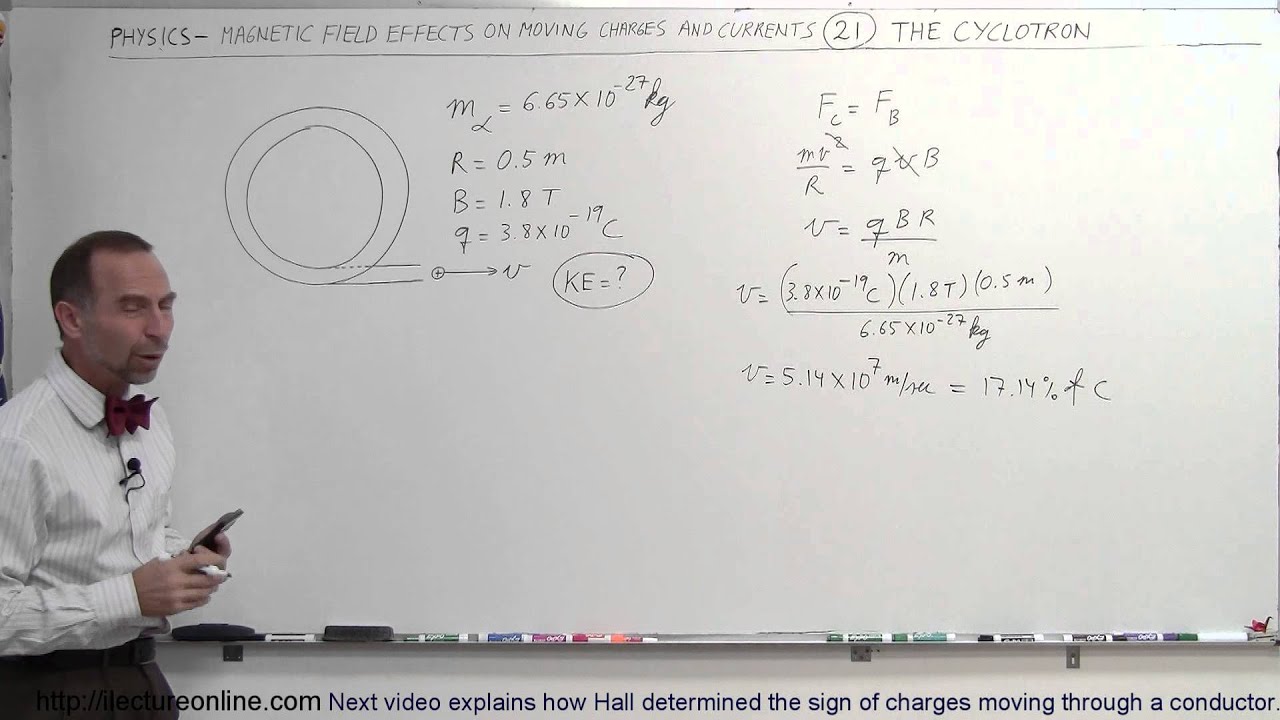 PHYSICS- MAGNETIC FIELD EFFECTS ON MOVING CHARGES AND CURRENTS (21) THE CYCLOTRON
m_α = 6.65×10^-27 kg
R = 0.5 m
B = 1.8 T
q = 3.8×10^-19 C
⊕ → v
KE=?
F_C = F_B
mv^2/R = qvB
v = qBR/m
v = (3.8×10^-19 C)(1.8 T)(0.5 m)/6.65×10^-27 kg
v = 5.14×10^7 m/sec = 17.14% of C
http://ilectureonline.com Next video explains how Hall determined the sign of charges moving through a conductor.